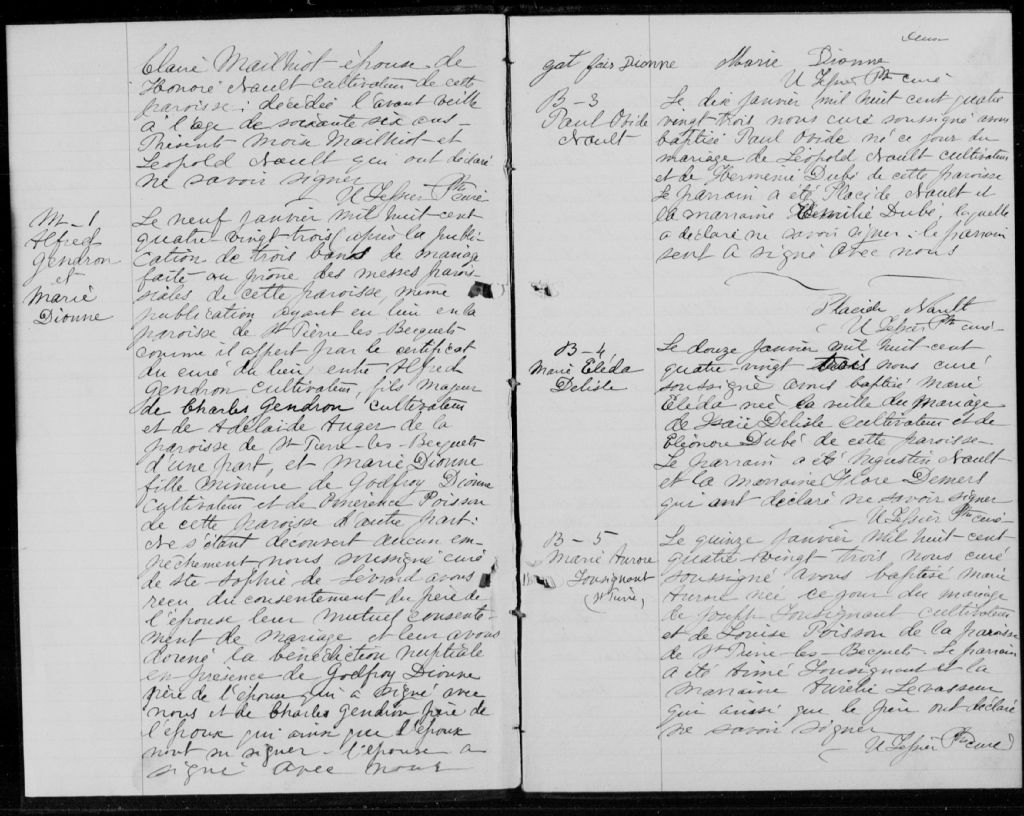 Claire Mailhiot épouse de
Honoré Nault cultivateur de cette
paroisse; décédée l'avant veille
à l'age de soixante six ans
Présents Moïse Mailhiot et
Leopold Nault qui ont déclaré
ne savoir signer
U Tessier Ptre curé
M-1
Alfred
Gendron
et
Marie
Dionne
Le neuf janvier mil huit cent
quatre-vingt trois, après la publi-
cation de trois bans de mariage
faite au prône des messes parois-
siales de cette paroisse, même
publication ayant eu lieu en la
paroisse de St Pierre les Becquets
comme il appert par le certificat
du curé du lieu entre Alfred
Gendron cultivateur, fils majeur
de Charles Gendron cultivateur
et de Adélaide Auger de la
paroisse de St Pierre-les-Becquets
d'une part, et Marie Dionne
fille mineure de Godfroy Dionne
cultivateur et de Poisson
de cette paroisse d'autre part:
Ne s'étant découvert aucun em-
pêchement nous soussigné curé
de Ste-Sophie de Levrard avons
reçu du consentement du père de
l'épouse leur mutuel consente-
ment de mariage et leur avons
donné la bénédiction nuptiale
en presence de Godfroy Dionne
père de l'épouse qui a signé avec
nous et de Charles Gendron père de
l'époux qui ainsi que l'époux
n'ont su signer - l'épouse a
signé avec nous
deux
got frois Dionne Marie Dionne
U Tessier Ptre curé
B-3
Paul Ovide
Nault
Le dix janvier mil huit cent quatre
vingt trois nous curé soussigné avons
baptisé Paul Ovide né ce jour du
mariage de Léopold Nault cultivateur
et de Herménie Dubé de cette paroisse
Le parrain a été Placide Nault et
la marraine Dubé; laquelle
a déclaré ne savoir signer: le parrain
seul a signé avec nous
Placide Nault
U Tessier Ptre curé
B-4
Marie Eléda
Delisle
Le douze janvier mil huit-cent
quatre-vingt trois nous curé
soussigné avons baptisé Marie
Eléda née la veille du mariage
de Isaïe Delisle cultivateur et de
Eléonore Dubé de cette paroisse-
Le parrain a été Augustin Nault
et la marraine Flore Demers
qui ont déclaré ne savoir signer
U Tessier Ptre curé
B-5
Marie Aurore
Tousignant
(St Pierre)
Le quinze janvier mil huit-cent
quatre-vingt trois nous curé
soussigné avons baptisé Marie
Aurore née ce jour du mariage
de Joseph Tousignant cultivateur
et de Louise Poisson de la paroisse
de St-Pierre-les-Becquets. Le parrain
a été Aimé Tousignant et la
marraine Aurélie Levasseur
qui aussi que le père ont déclaré
ne savoir signer
U Tessier Ptre curé